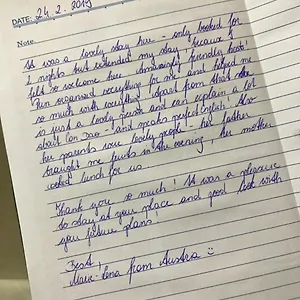 DATE: 24. 2. 2019
Note
It was a lovely stay here - only booked for
2 nights but extended my stay because I
felt so welcome here. Amazingly friendly host!
organised everything for me and helped me
so much with everything. Apart from that she
is just a lovely person and can explain a lot
about Con Dao - and speaks perfect English! Also
her parents were lovely people - her father
brought me fruits in the evening, her mother
cooked lunch for us.
Thank you so much! It was a pleasure
to stay at your place and good luck with
you future plans!
Best,
from Austria :)